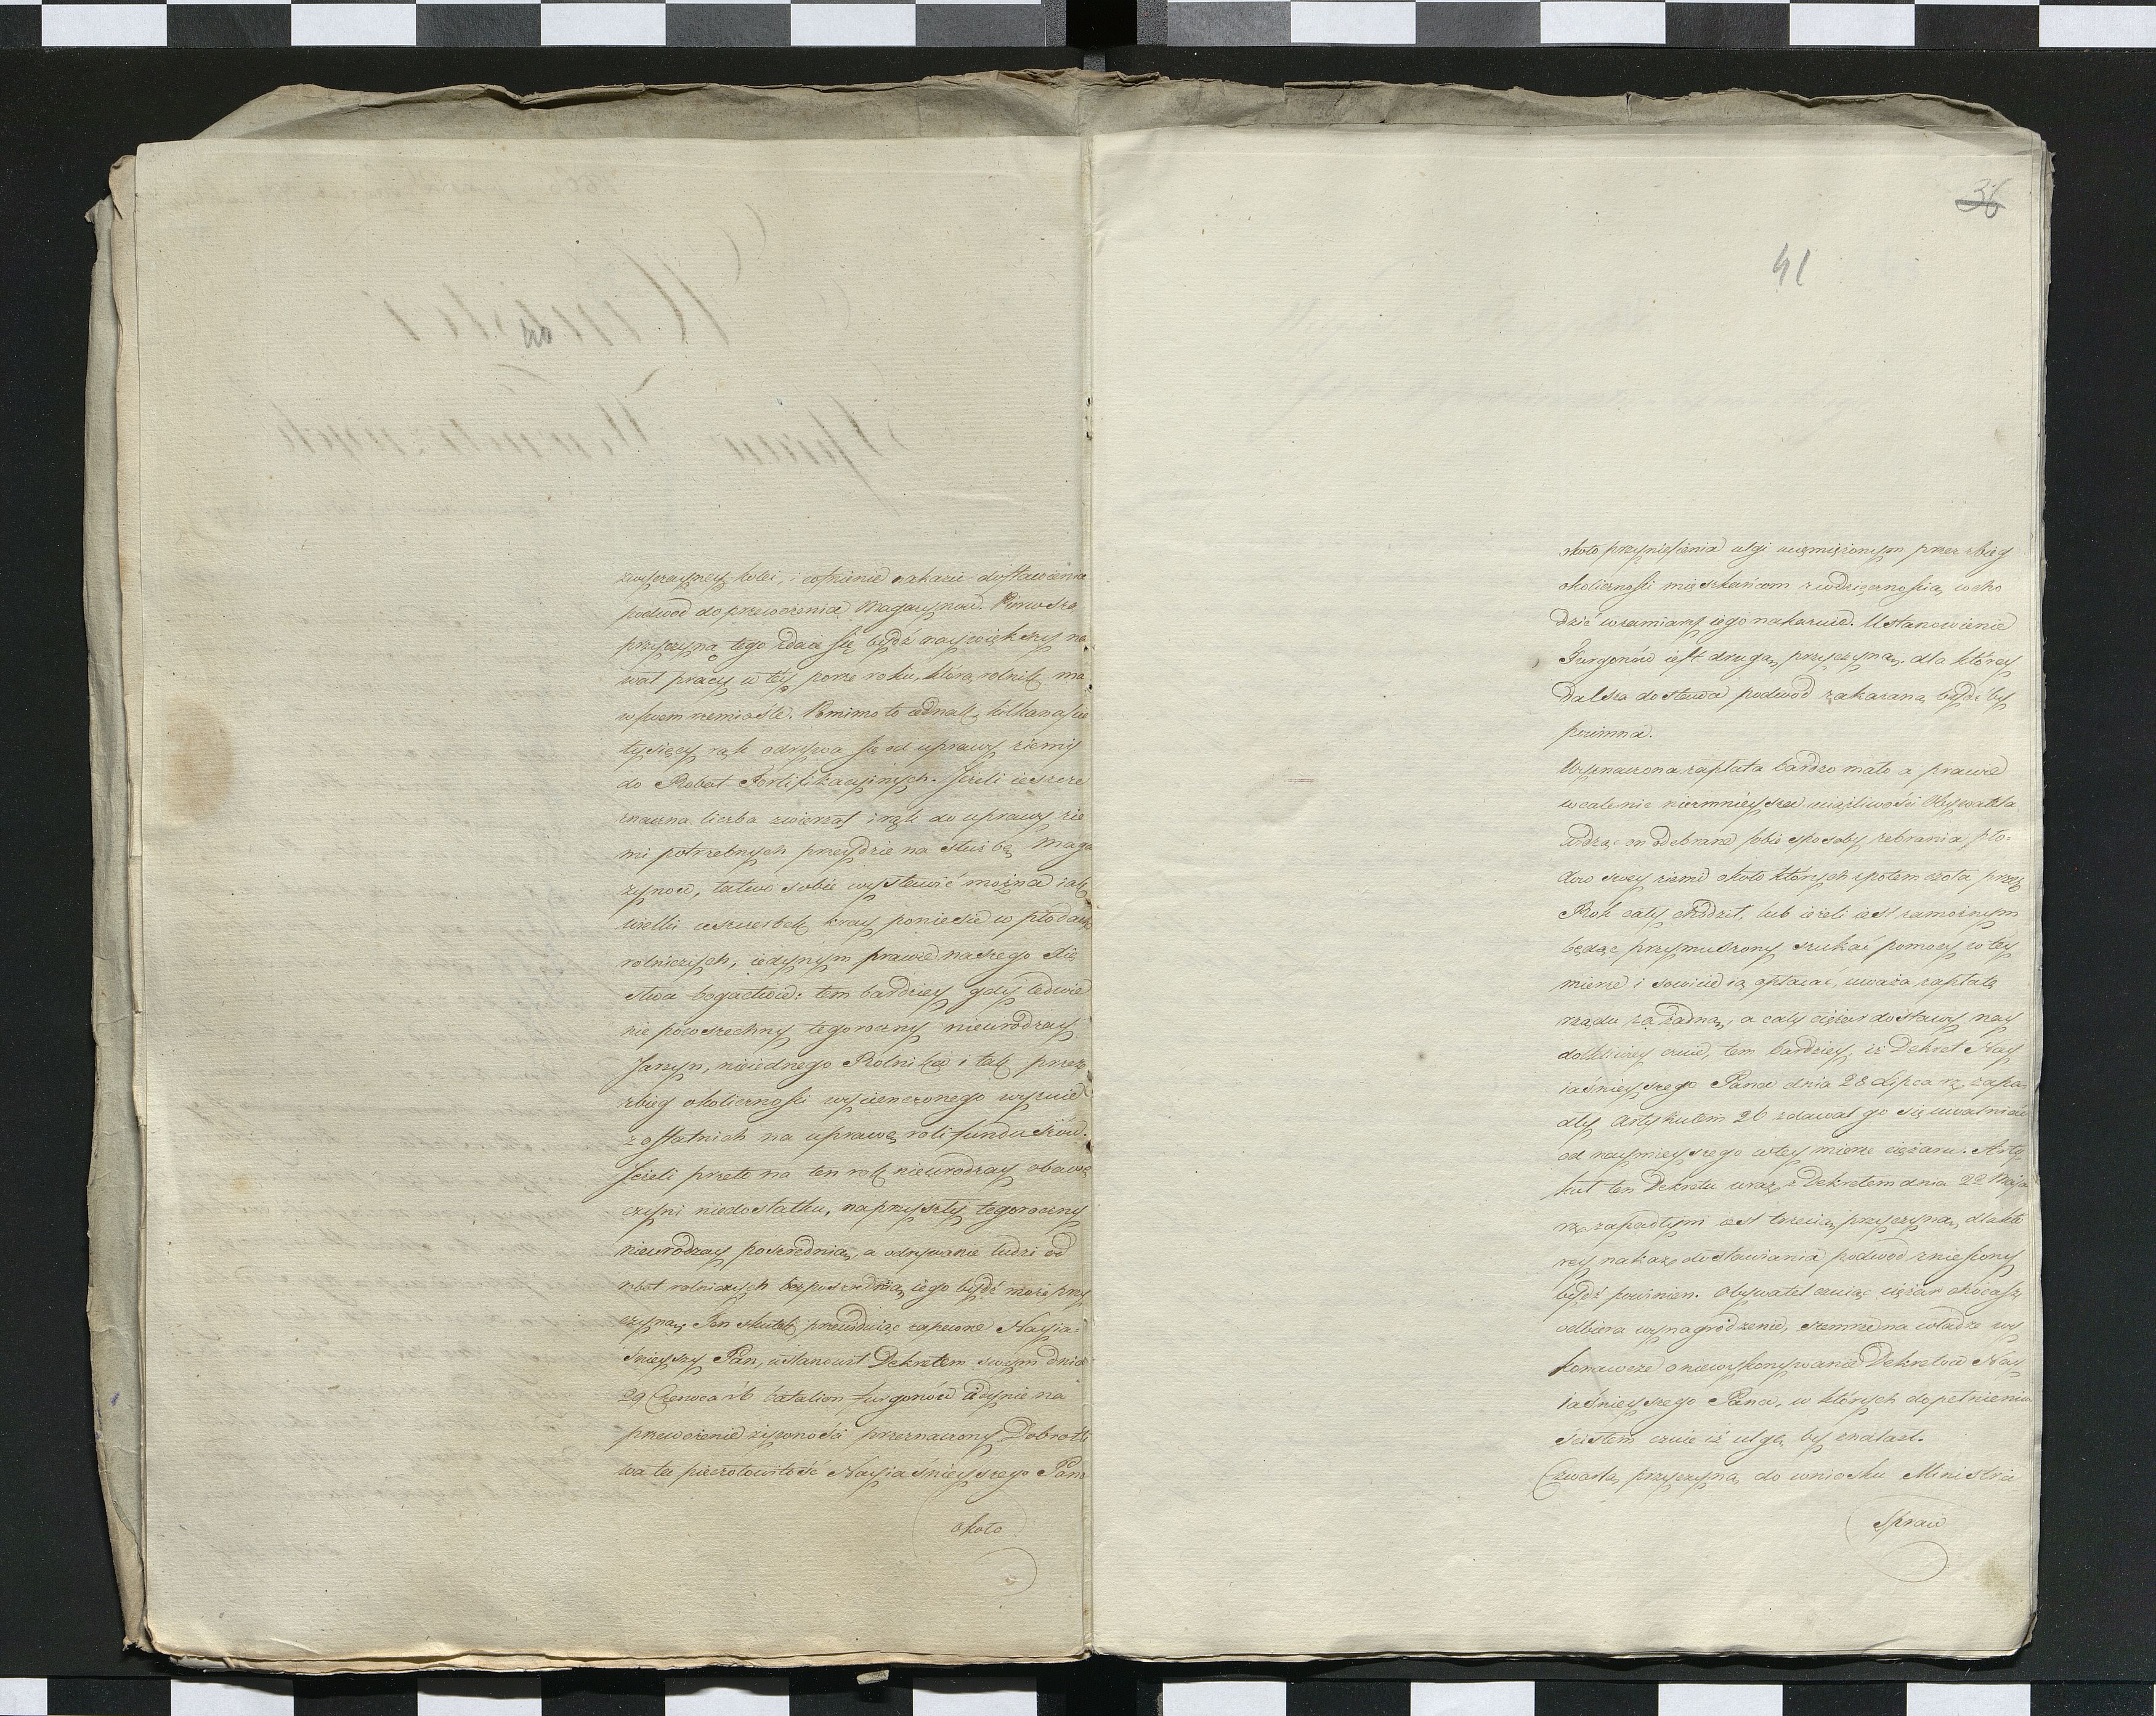 40
zwyczayney kolei, i cofnienie nakazu dostawienia
podwod do przewożenia Magazynow. Pierwszą
przyczyną tego zdaie się bydź naywiększy na
wał pracy w tey porze roku, którą rolnik ma
w swem rzemiośle. Pomimo to iednak kilkanaście
tysięcy rąk odrywa się od uprawy ziemi
do Robot Fortifikacyinych. Jeżeli ieszcze
znaczna liczba zwierząt i rąk do uprawy zie
mi potrzebnych przeydzie na służbę Maga
zynow, łatwo sobie wystawić można iak
wielki uszczerbek kray poniesie w płodach
rolniczych, iedynym prawie naszego Xię
stwa bogactwie: tem bardziey gdy ledwie
nie powszechny tegoroczny nieurodzay
Jarzyn, nieiednego Rolnika i tak przez
zbieg okoliczności wycienczonego wyzuie
z ostatnich na uprawę roli funduszów.
Jeżeli przeto na ten rok nieurodzay obawę
czyni niedostatku, na przyszły tegoroczny
nieurodzay poserednią, a odrywanie ludzi od
robot rolniczych bezposrednią iego bydź może przy
czyną. Ten skutek przewiduiąc zapewne Nayia=
śnieyszy Pan, ustanowił Dekretem swym dnia
29 Czerwca rb batalion furgonów iedynie na
przewożenie żywności przeznaczony. Dobrotli
wa ta pieczołowitość Nayiaśnieyszego Pana
około
36
41
około przyniesienia ulgi uciemiężonym przez zbieg
okoliczności mieszkańcom z wdzięcznością wcho
dzić w zamiary iego nakazuie. Ustanowienie
Furgonów iest drugą przyczyną, dla którey
dalsza dostawa podwod zakazaną bydźby
powinna.
Wyznaczona zapłata bardzo mało a prawie
wcale nie niezmnieysza uciążliwości Obywatela
Widząc on odebrane sobie sposoby zebrania pło=
dow swey ziemi około których z potem czoła przez
Rok cały chodził, lub ieżeli iest zamożnym
będąc przymuszony szukać pomocy w tey
mierze i sowicie ią opłacać, uważa zapłatę
rządu za żadną, a cały ciężar dostawy nay
dotkliwiey czuie, tem bardziey, iż Dekret Nay
iaśnieyszego Pana dnia 28 Lipca rz zapa=
dły Artykułem 26 zdawał go się uwalniać
od naymnieyszego w tey mierze ciężaru. Arty
kuł ten Dekretu wraz z Dekretem dnia 22 Maja
rz zapadłym iest trzecią przyczyną, dla któ
rey nakaz dostawiania podwod zniesiony
bydź powinien. Obywatel czuiąc ciężar chociaż
odbiera wynagrodzenie, szemrze na władze wy
konawcze o niewykonywanie Dekretow Nay
iaśnieyszego Pana, w których dopełnieniu
istotem czuie iż ulgę by znalazł.
Czwartą przyczyną do wniosku Ministra
Spraw